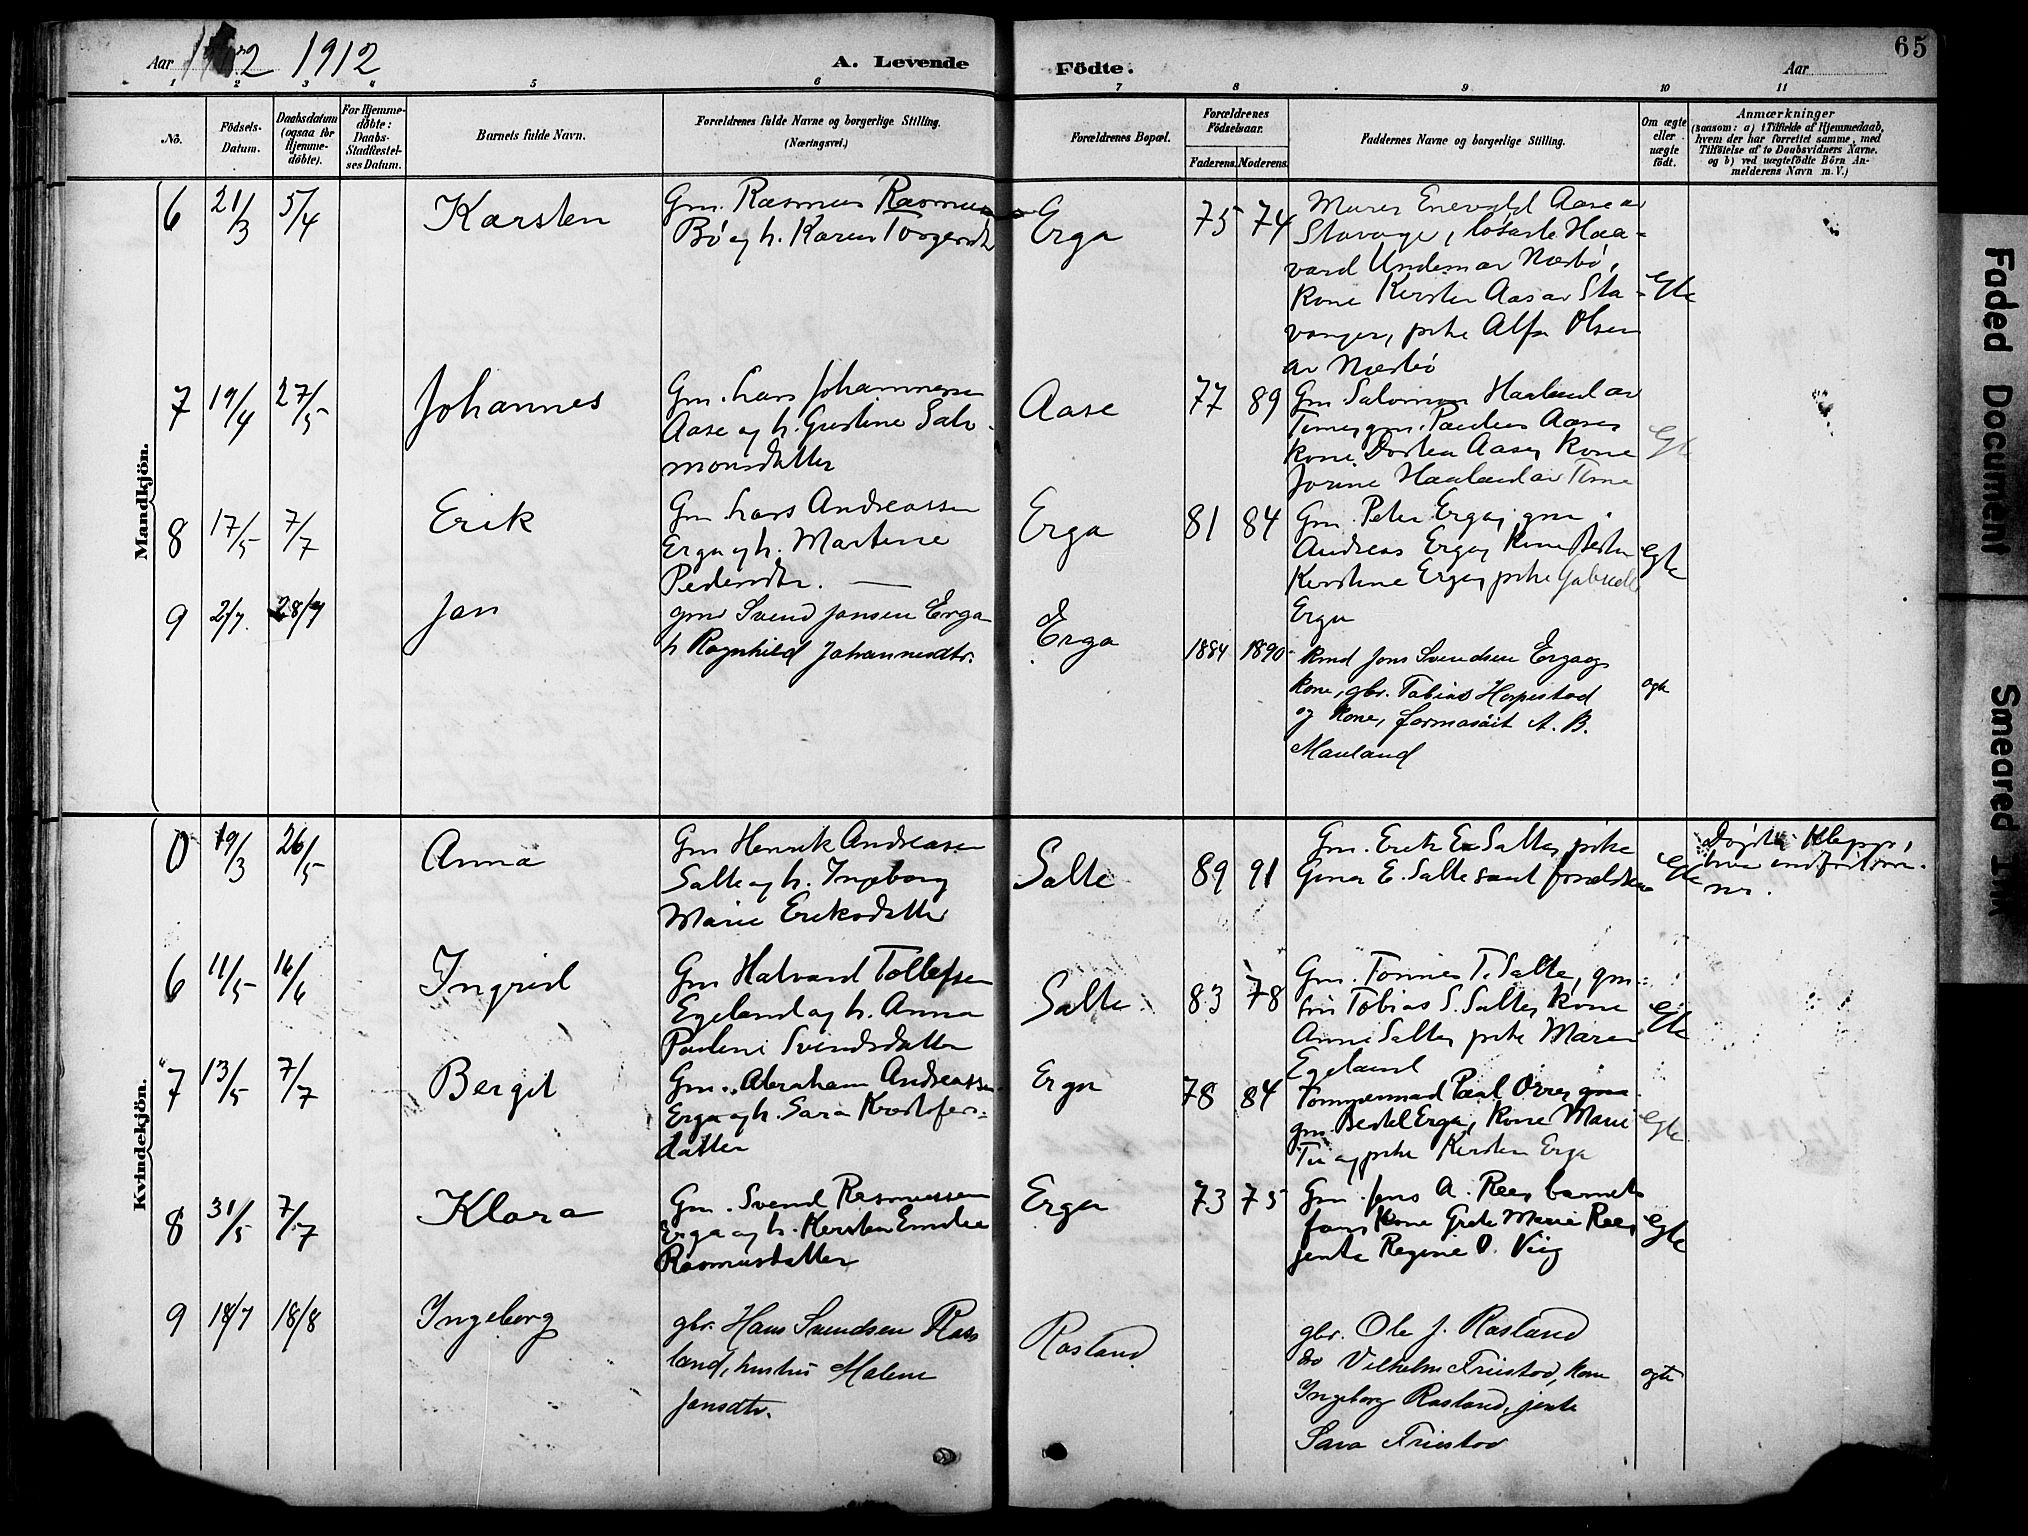 Aar 1912 1912
A. Levende
Födte.
Aar
65
1 2 3 4 5 6 7 8 9 10 11
No.
Födsels-
Datum.
Daabsdatum
(ogsaa for
Hjemme-
döbte).
For Hjemme-
döbte:
Daabs-
Stadfæstel-
ses Datum.
Barnets fulde Navn.
Forældrenes fulde Navne og borgerlige Stilling.
(Næringsvei.)
Forældrenes Bopæl.
Forældrenes
Födselsaar.
Faderens. Moderens.
Faddernes Navne og borgerlige Stilling.
Om ægte
eller
uægte
født.
Anmærkninger
(saasom: a) i Tilfælde af Hjemmedaab,
hvem der har forrettet samme, med
Tilföielse af to Daabsvidners Navne.
og b) ved uægtefödte Börn An-
melderens Navn m. V.)
Mandkjön.
6 21/3 5/4 Karsten
Gm. Rasmus Rasmus
Bö og h. Karen Torgersdtr
Erga 75 74
Murer Enevald Aase av
Stavange, Haa-
vard Undem av Nærbö,
kone Kirsten Aas av Sta-
vanger, pike Alfa Olsen
av Nærbö
Egte
7 19/4 27/5 Johannes
Gm. Lars Johannesen
Aase og h. Gustine Salo-
monsdatter
Aase 77 89
Gm Salomon Haaland av
Time, gm. Aase,
kone Dortea Aase, kone
Jorine Haaland av Time
Egte
8 17/5 7/7 Erik
Gm. Lars Andreassen
Erga og h. Martine
Pedersdtr.
Erga 81 84
Gm. Peter Erga, gm.
Andreas Erga, kone
Kirstine Erga, pike Gabriele
Erga
Egte
9 2/7. 28/7 Jan
gmd Svend Jansen Erga
h Ragnhild Johannesdtr.
Erga 1884 1890
Kmd Jons Svendsen Erga og
kone, gbr. Tobias Horpestad
og kone, A. B.
Mauland
egte
Kvindekjön.
0 19/3 26/5 Anna
Gm Henrik Andreasen
Salte og h. Ingeborg
Marie Eriksdatter
Salte 89 91
Gm. Erik E Salte, pike
Gina E. Salte samt forældrene
Egte
Döpt i Klepp,
men indfört
nr.
6 11/5 16/6 Ingrid
Gm Halvard Tollefsen
Egeland og h. Anna
Pauline Svendsdatter
Salte 83 78
Gm. Tönnes T. Salte, gm-
Tobias S. Salte, kone
Anna Salte, pike Maren
Egeland
Egte
7 13/5 7/7 Bergit
Gm. Abraham Andreassen
Erga og h. Sara Kristofers-
datter
Erga 78 84
Tömmermand Paul Orre,
gm. Bertel Erga, kone Marie
Tu og pike Kirsten Erga
Egte
8 31/5 7/7 Klara
Gm. Svend Rasmussen
Erga og h. Kirsten Emilie
Rasmusdatter
Erga 73 75
Gm. Jens A. Ree, barnets
far, kone Grete Marie Ree,
jente Regine O. Vig
Egte
9 18/7 18/8 Ingeborg
gbr. Hans Svendsen Ras
land, hustru Malene
Jansdtr.
Rosland
gbr. Ole J. Rosland
do Vilhelm Friestad, kone
Ingeborg Rosland, jente
Sara Friestad
egte
Faded Document
Smeared Ink